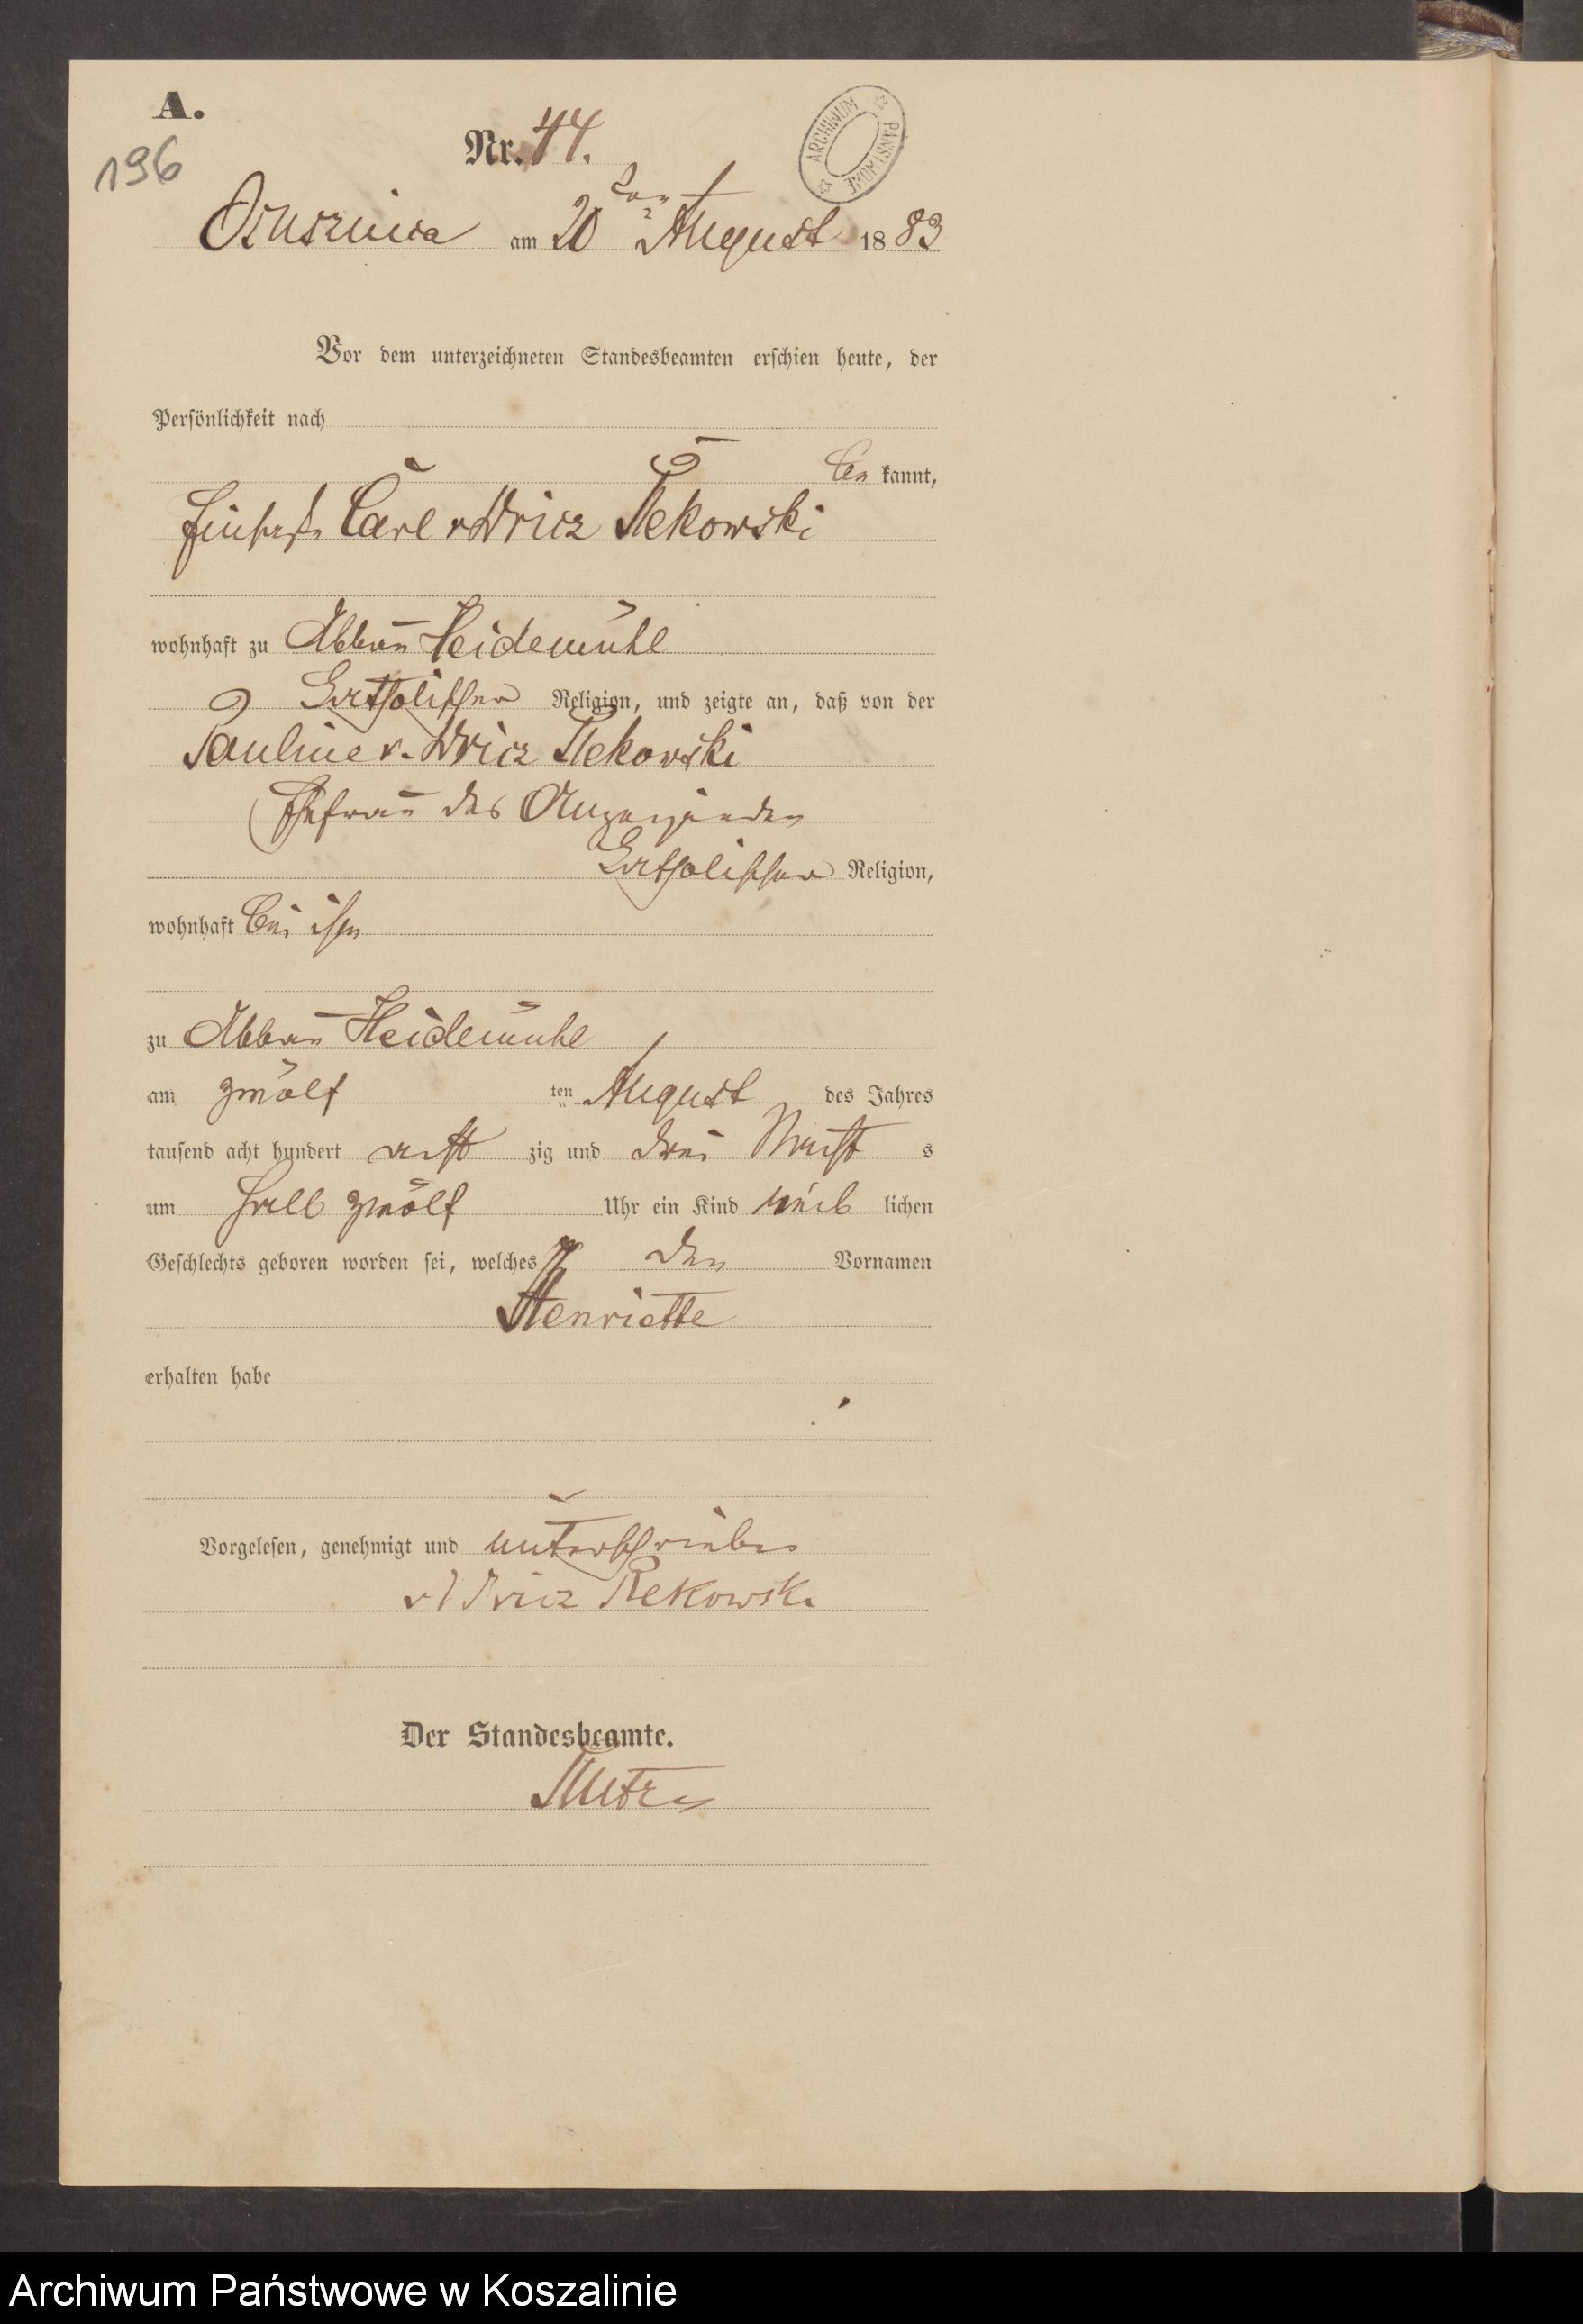 A.
196
Nr. 44.
ARCHIWUM PAŃSTWOWE
Oslusznica am 20ten August 1883
Vor dem unterzeichneten Standesbeamten erschien heute, der
Persönlichkeit nach
be kannt,
Carl v Wricz Rekowski
wohnhaft zu Abbau Heidemühl
katholischer Religion, und zeigte an, daß von der
Pauline v. Wricz Rekowski
Ehefrau des Anzeigenden
katholischer Religion,
wohnhaft bei ihm
zu Abbau Heidemühl
am zwölf ten August des Jahres
tausend acht hundert acht zig und drei Nacht s
um halb zwölf Uhr ein Kind weib lichen
Geschlechts geboren worden sei, welches den Vornamen
Henriette
erhalten habe
Vorgelesen, genehmigt und unterschrieben
v Wricz Rekowski
Der Standesbeamte.
Archiwum Państwowe w Koszalinie